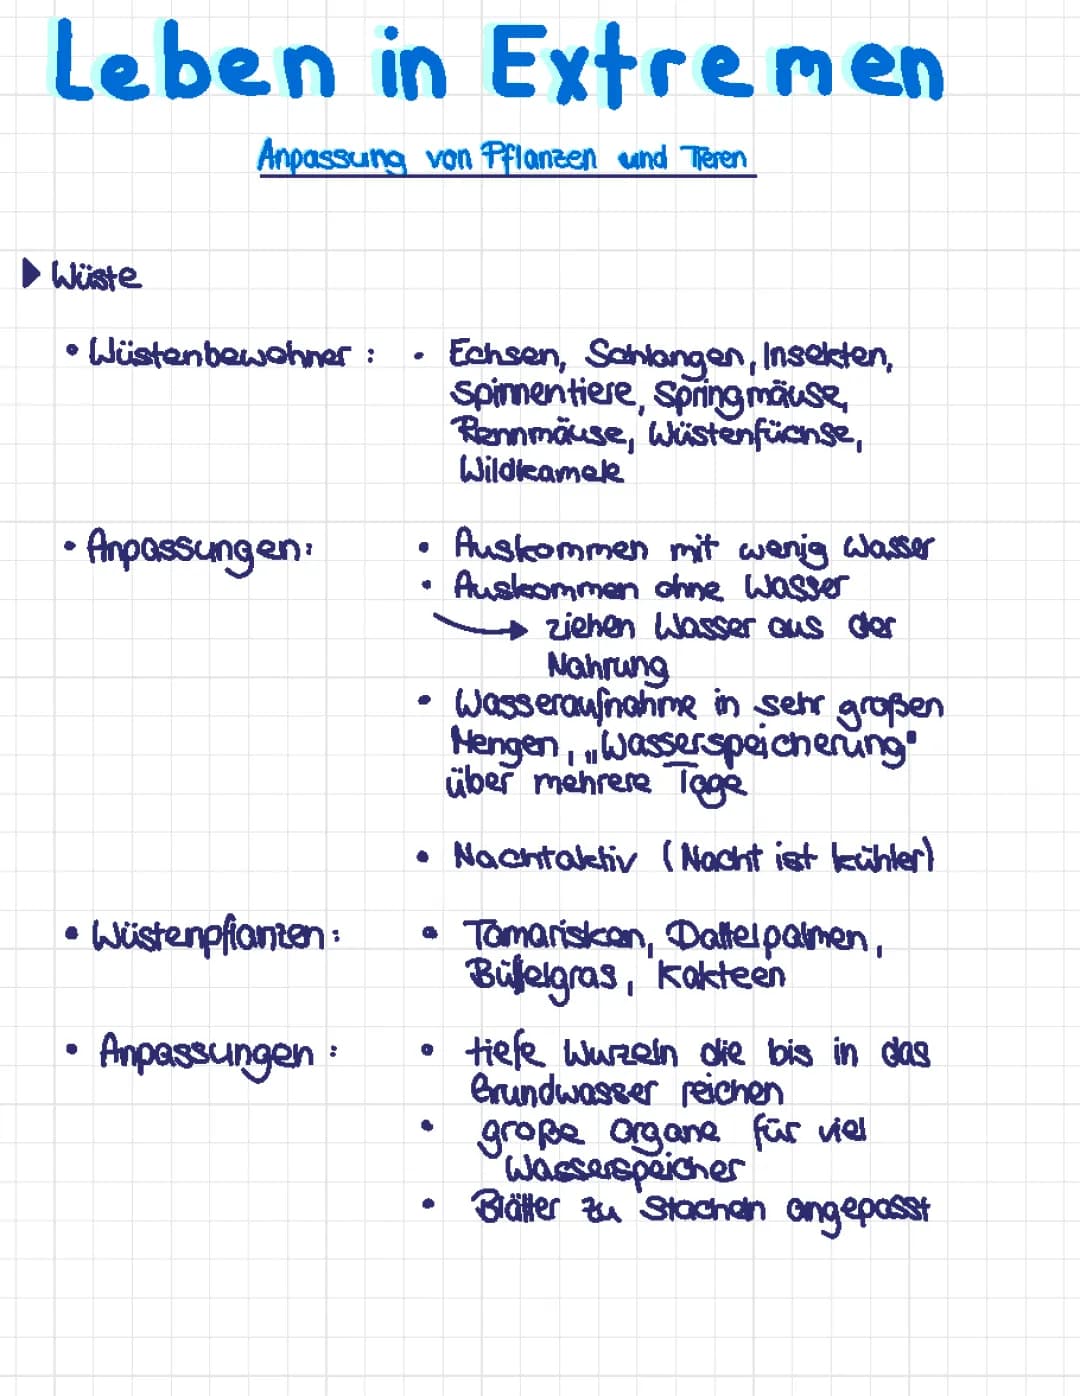 Leben in Extremen
Anpassung von Pflanzen und Tieren
Wüste
• Wüstenbewohner : • Echsen, Schlangen, Insekten,
Spinnentiere, Springmäuse,
Rennmäuse, Wüstenfüchse,
Wildkamele
• Anpassungen: • Auskommen mit wenig Wasser
• Auskommen ohne Wasser
→ ziehen Wasser aus der
Nahrung
• Wasseraufnahme in sehr großen
Mengen, „Wasserspeicherung"
über mehrere Tage
• Nachtaktiv (Nacht ist kühler)
• Wüstenpflanzen: • Tamarisken, Dattelpalmen,
Büffelgras, Kakteen
• Anpassungen : • tiefe Wurzeln die bis in das
Grundwasser reichen
• große Organe für viel
Wasserspeicher
• Blätter zu Stacheln angepasst